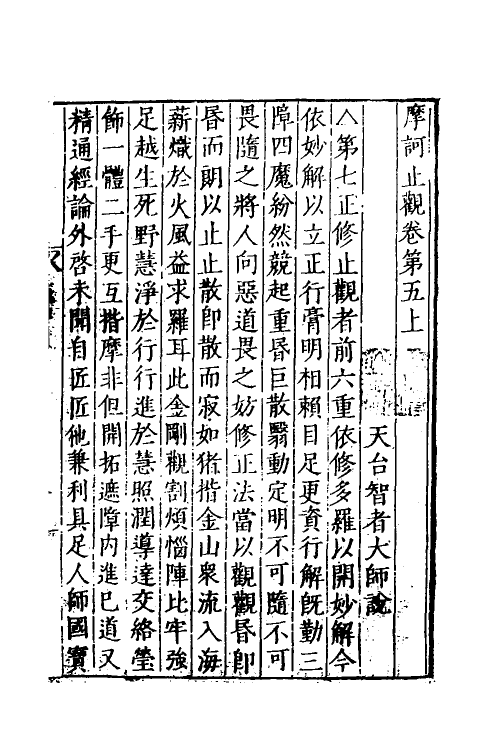 摩訶止觀卷第五上
天台智者大師說
△第七正修止觀者前六重依修多羅以開妙解今
依妙解以立正行膏明相賴目足更資行解旣勤三
障四魔紛然競起重昬巨散翳動定明不可隨不可
畏隨之將人向惡道畏之妨修正法當以觀觀昬卽
昬而朗以止止散卽散而寂如猪揩金山衆流入海
薪熾於火風益求羅耳此金剛觀割煩惱陣比牢強
足越生死野慧淨於行行進於慧照潤導達交絡瑩
飾一體二手更互揩摩非但開拓遮障內進己道又
精通經論外啓未聞自匠匠他兼利具足人師國寶